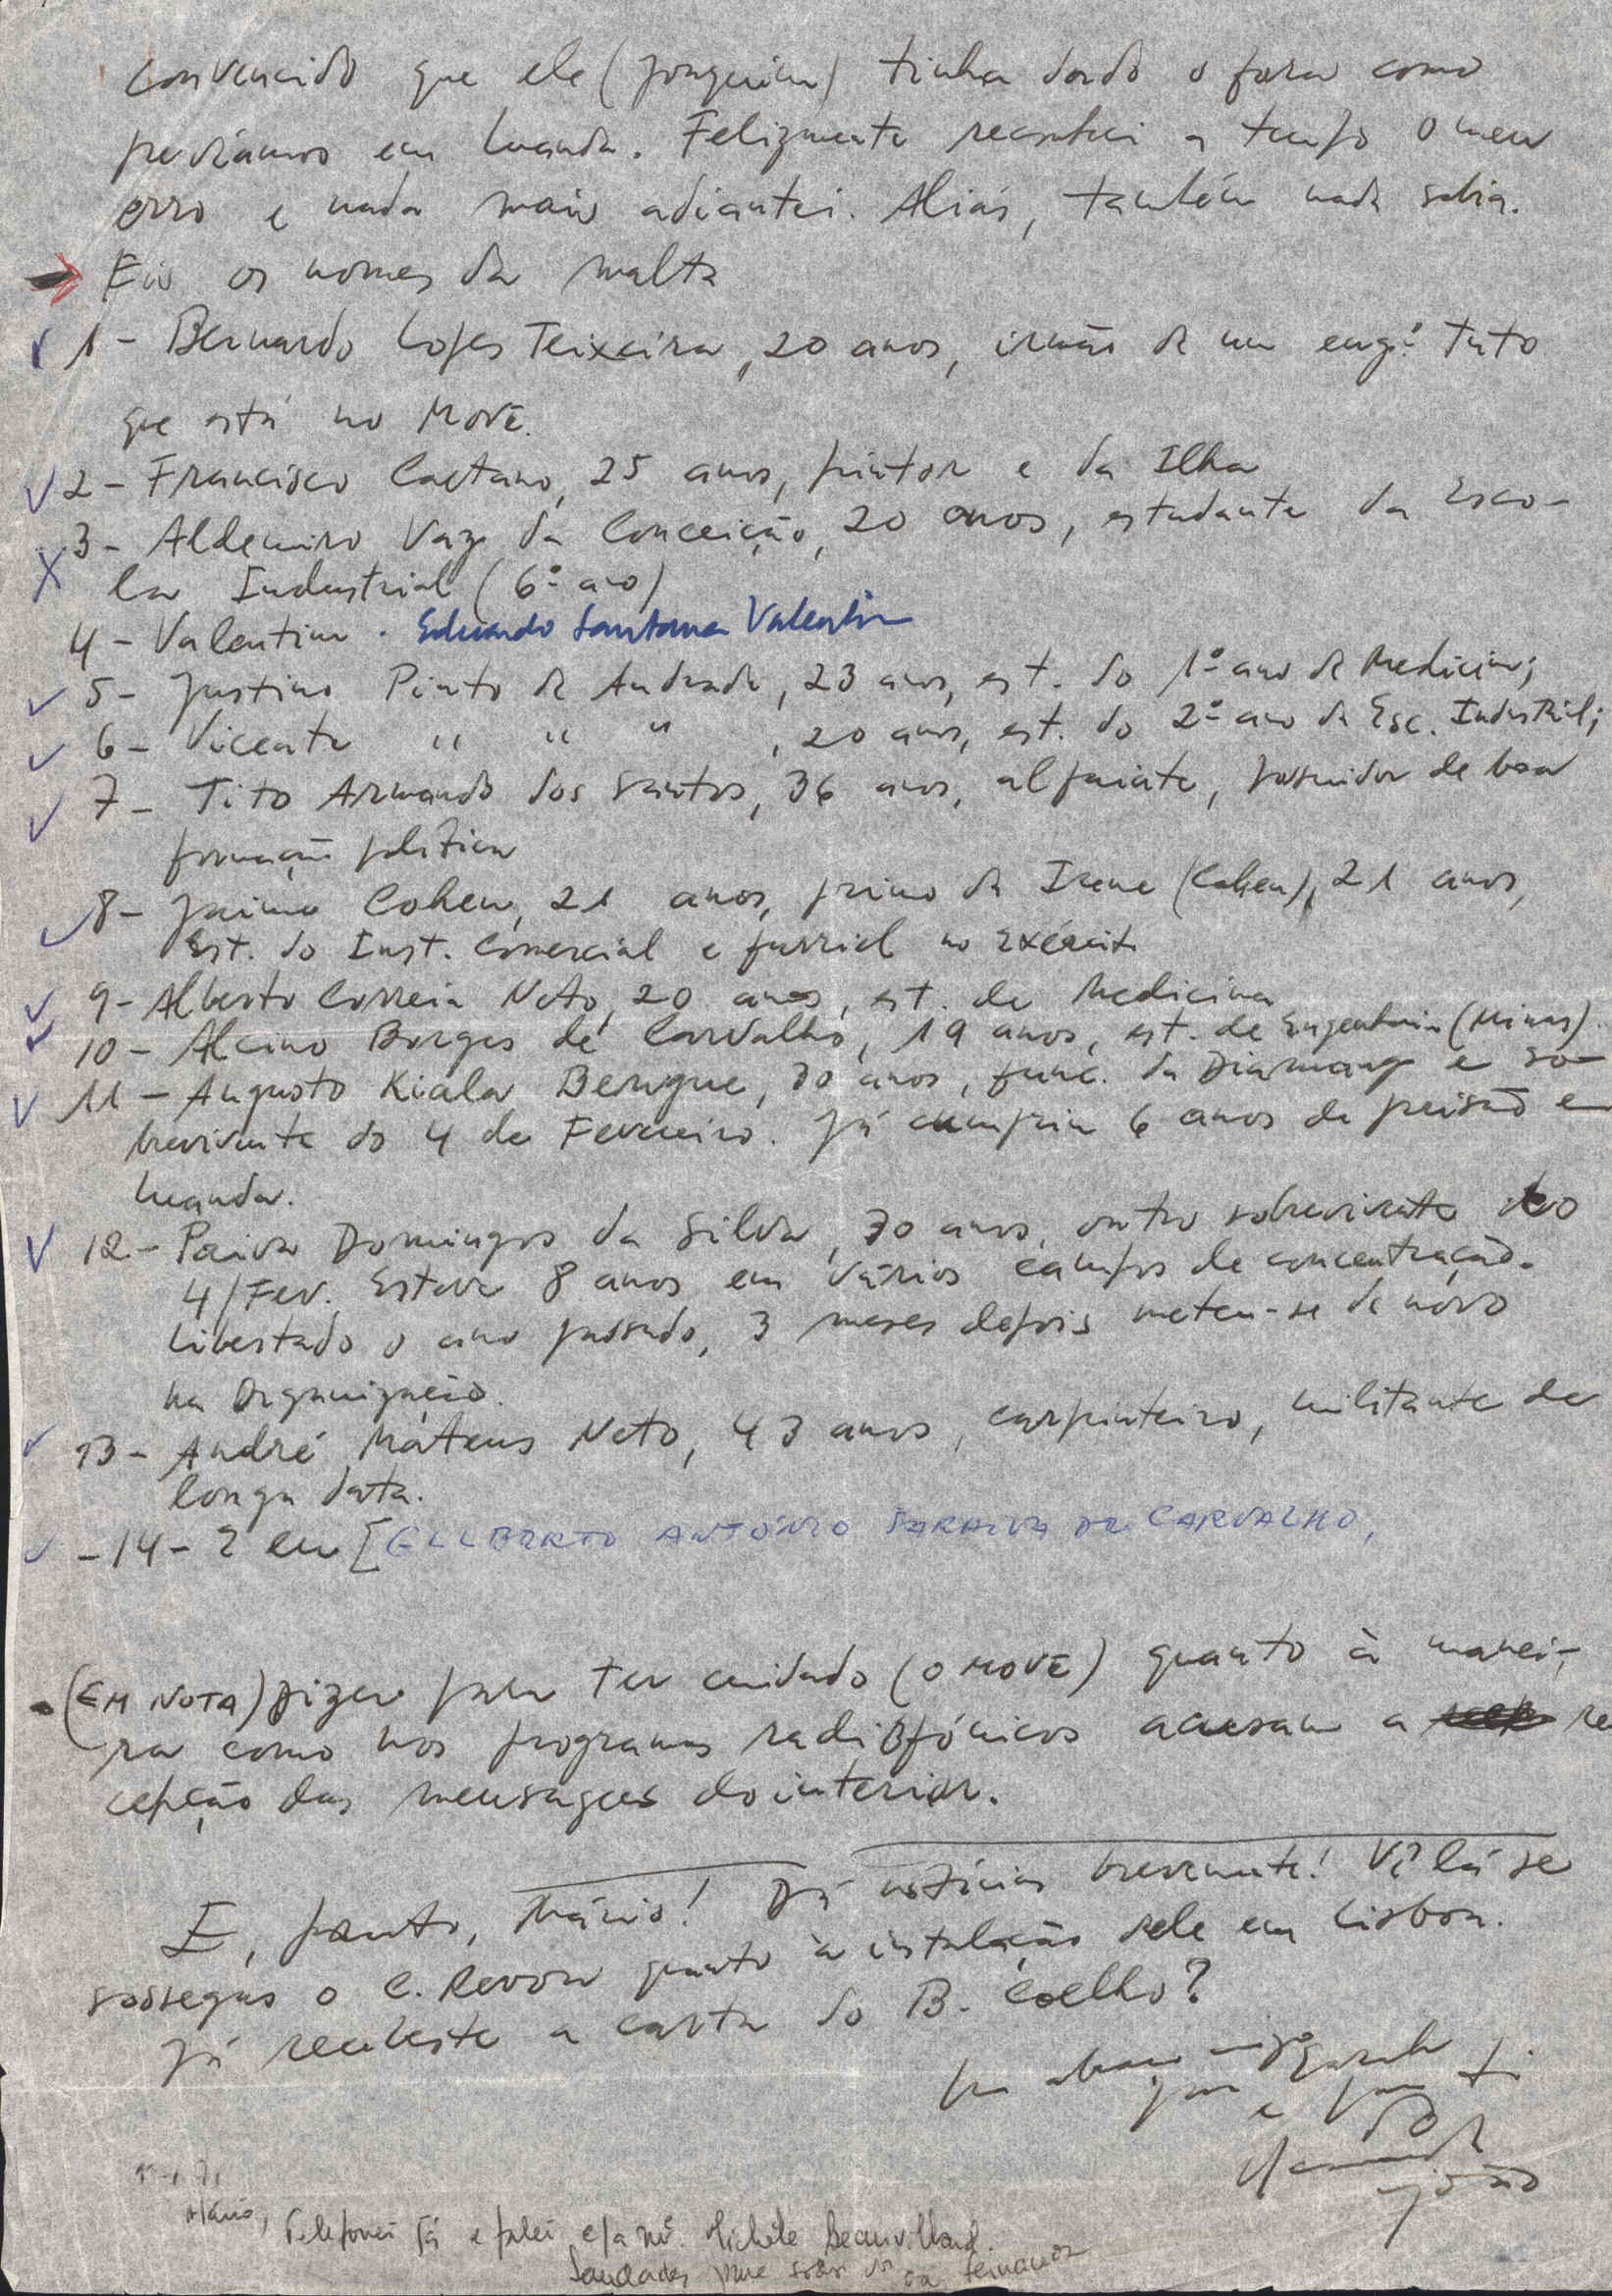 convencido que ele (Joaquim) tinha dado o fora como
prevíamos em Luanda. Felizmente reconheci a tempo o meu
erro e nada mais adiantei. Aliás, também nada sabia.
Eis os nomes da malta
1- Bernardo Lopes Teixeira, 20 anos, irmão de um engº. Tuto
que está no Movê.
2- Francisco Caetano, 25 anos, pintor e da Ilha
3- Aldemiro Vaz da Conceição, 20 anos, estudante da Esco-
la Industrial (6º ano)
4- Valentim. Eduardo Santana Valentim
5- Justino Pinto de Andrade, 23 anos, est. do 1º ano de Medicina;
6- Vicente " " " , 20 anos, est. do 2º ano da Esc. Industrial;
7- Tito Armando dos Santos, 36 anos, alfaiate, possuidor de boa
formação política
8- Jaime Cohen, 21 anos, primo da Irene (Cohen), 21 anos,
Est. do Inst. Comercial e furriel no Exército
9- Alberto Correia Neto, 20 anos, est. de Medicina
10- Alcino Borges de Carvalho, 19 anos, est. de Engenharia (Minas).
11- Augusto Kiala Bengue, 30 anos, func. da Diamang e so-
brevivente do 4 de Fevereiro. Já cumpriu 6 anos de prisão em
Luanda.
12- Paiva Domingos da Silva, 30 anos, outro sobrevivente do
4/Fev. Esteve 8 anos em vários campos de concentração.
Libertado o ano passado, 3 meses depois meteu-se de novo
na Organização.
13- André Mateus Neto, 43 anos, carpinteiro, militante de
longa data.
-14- E eu [GILBERTO ANTÓNIO SARAIVA DE CARVALHO,
(EM NOTA) Dizer para ter cuidado (o MOVÊ) quanto à manei-
ra como nos programas radiofónicos acusam a re
cepção das mensagens do interior.
E, pronto, Mário! Dá notícias brevemente! Vê lá se
sossegas o C. Revon quanto à instalação dele em Lisboa.
Já recebeste a carta do B. Coelho?
Um abraço
para e para ti
do
João
Mário,
Telefonei já e falei c/a Mê. Michèle Beauvillard.
Saudades